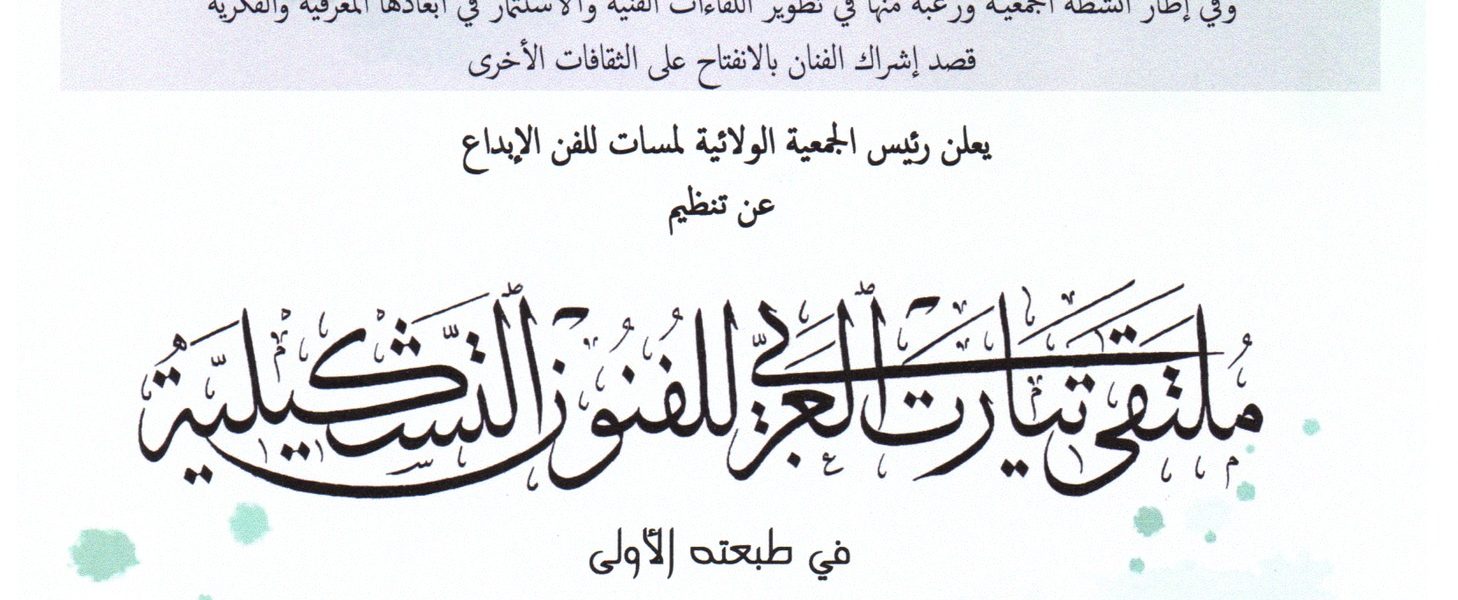 وفي إطار أنشطة الجمعية ورغبة منها في تطوير اللقاءات الفنية والاستثمار في أبعادها المعرفية والفكرية
قصد إشراك الفنان بالانفتاح على الثقافات الأخرى
يعلن رئيس الجمعية الولائية لمسات للفن الإبداع
عن تنظيم
ملتقى تيارت العربي للفنون التشكيلية
في طبعته الأولى